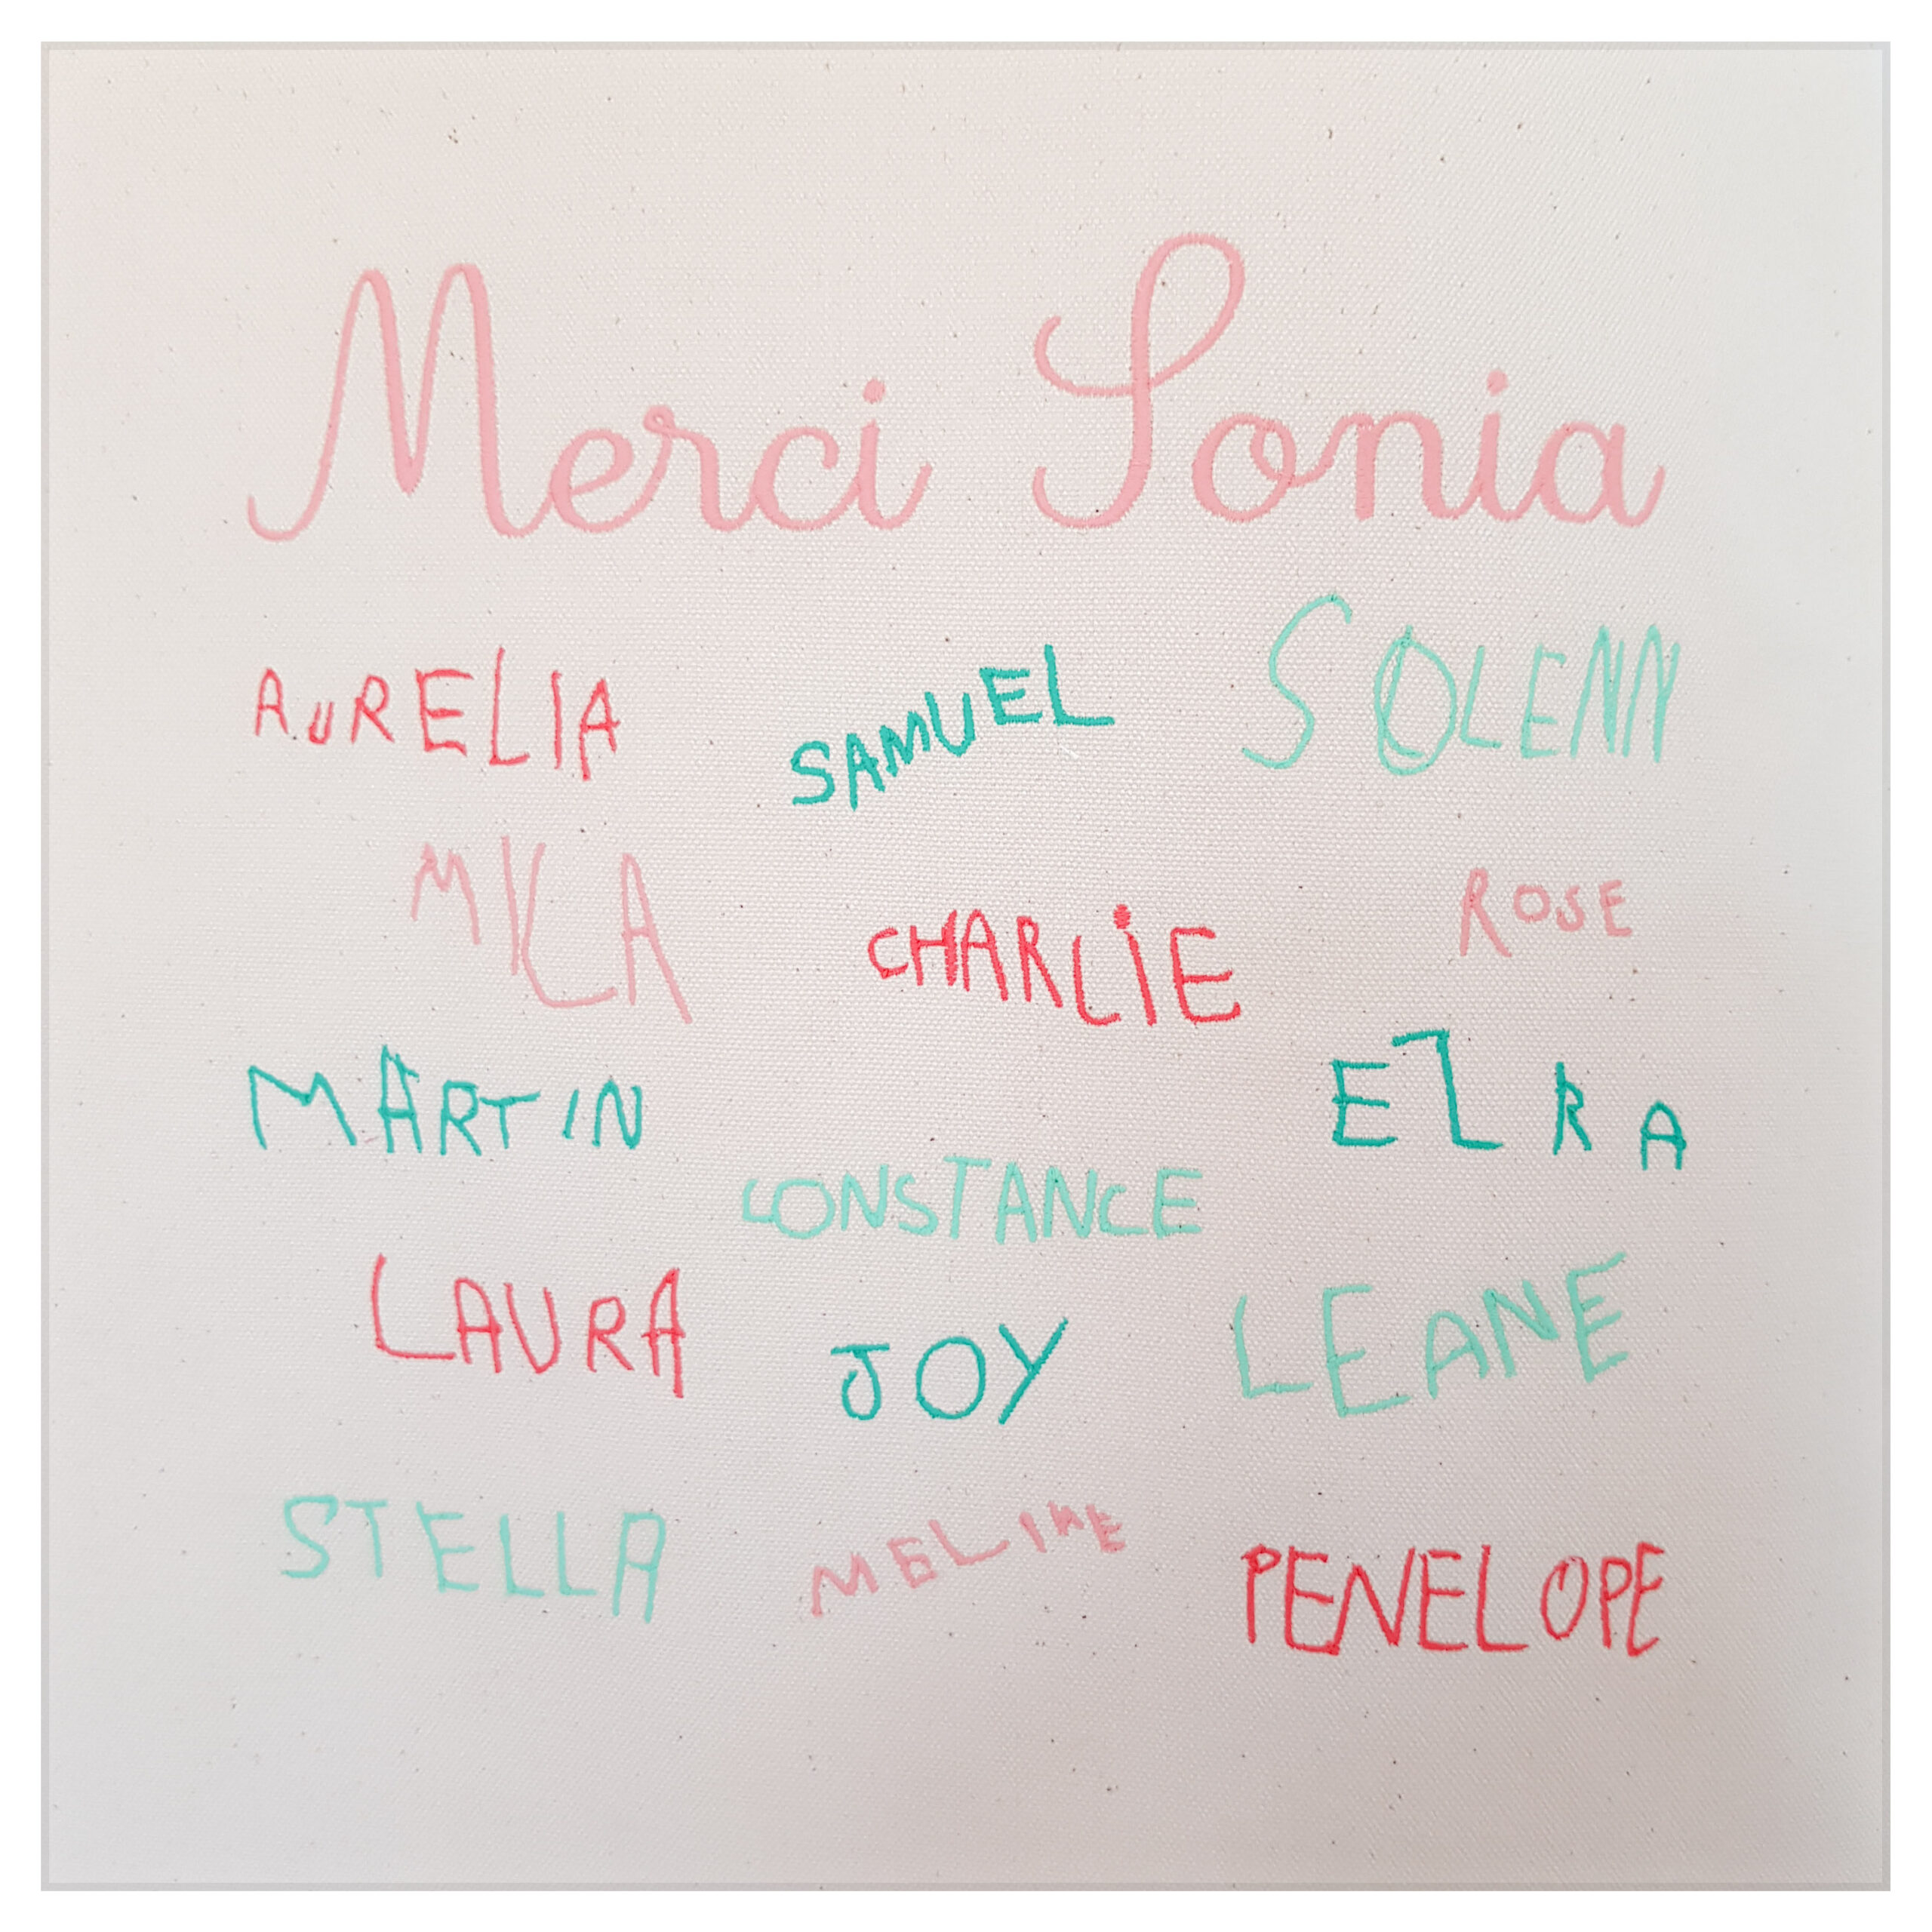 Merci Sonia
AuRELIA SAMUEL SOLENN
MILA CHARLiE ROSE
MARTIN EZRA
CONSTANCE
LAURA JOY LEANE
STELLA MELINE PENELOPE